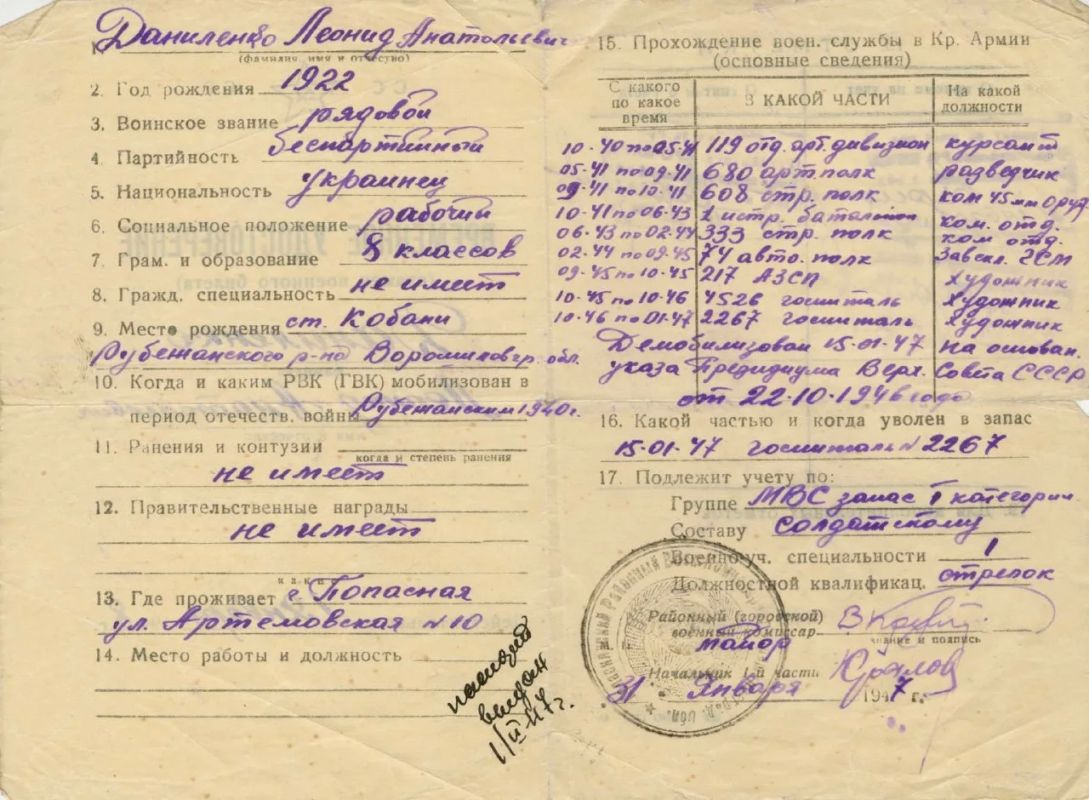 1. Даниленко Леонид Анатольевич
(фамилия, имя и отчество)
2. Год рождения 1922
3. Воинское звание рядовой
4. Партийность беспартийный
5. Национальность украинец
6. Социальное положение рабочий
7. Грам. и образование 8 классов
8. Гражд. специальность не имеет
9. Место рождения ст. Кобани
Рубежанского р-на Ворошиловгр. обл.
10. Когда и каким РВК (ГВК) мобилизован в
период отечеств. войны Рубежанским 1940г.
11. Ранения и контузии
когда и степень ранения
не имеет
12. Правительственные награды
не имеет
какие
13. Где проживает г. Попасная
ул. Артемовская №10
14. Место работы и должность
паспорт
выдан
1/II-47г.
15. Прохождение воен. службы в Кр. Армии
(основные сведения)
С какого по какое время В КАКОЙ ЧАСТИ На какой должности
10-40 по 05-41 119 отд. арт. дивизион курсант
05-41 по 09-41 680 арт. полк разведчик
09-41 по 10-41 608 стр. полк ком 45мм оруд.
10-41 по 06-43 1 истр. баталион ком. отд.
06-43 по 02-44 333 стр. полк ком отд.
02-44 по 09-45 74 авто. полк Завскл. ГСМ
09-45 по 10-45 217 АЗСП художник
10-45 по 10-46 4526 госпиталь художник
10-46 по 01-47 2267 госпиталь художник
Демобилизован 15-01-47 на основан.
указа Президиума Верх. Совета СССР
от 22-10-1946 года
16. Какой частью и когда уволен в запас
15-01-47 госпиталь №2267
17. Подлежит учету по:
Группе МВС запас I категории
Составу солдатскому
Военно-уч. специальности 1
Должностной квалификац. стрелок
Районный (городской)
военный комиссар.
звание и подпись
майор
Начальник 1-й части
31 Января 1947 г.